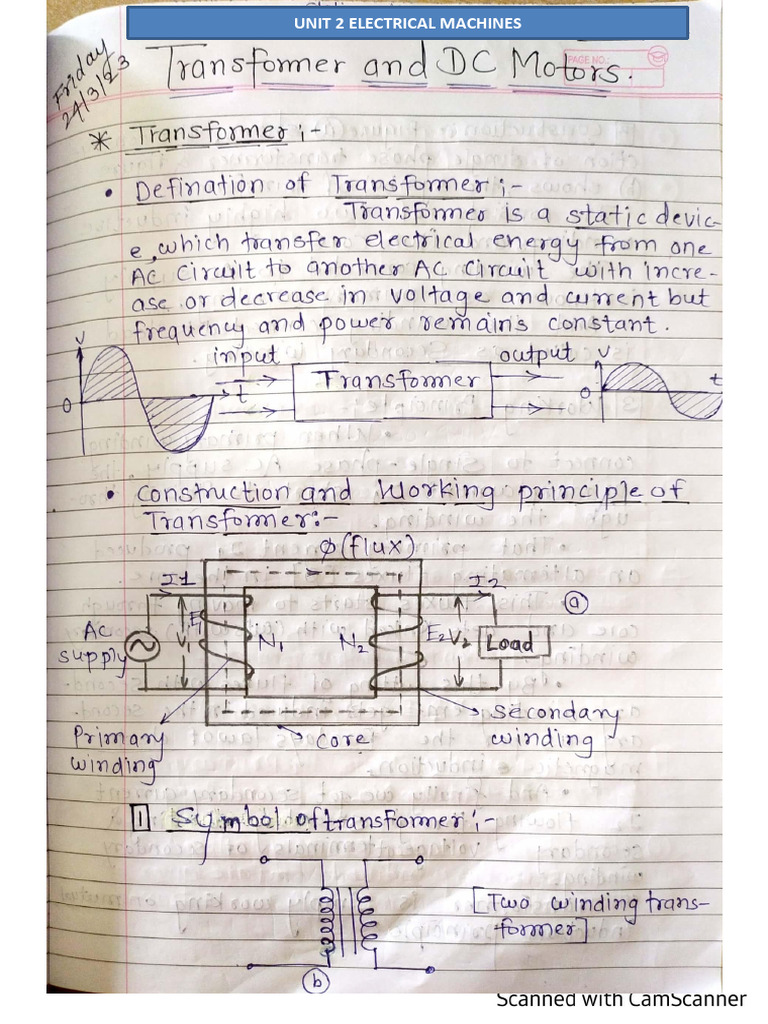 UNIT 2 ELECTRICAL MACHINES
Friday
24/3/23
Transformer and DC Motors.
PAGE NO.:
* Transformer :-
• Defination of Transformer :-
Transformer is a static devic-
e, which transfer electrical energy from one
AC circuit to another AC circuit with incre-
ase or decrease in voltage and current but
frequency and power remains constant.
V input output V
Transformer
0 t 0 t
• Construction and Working principle of
Transformer:-
φ (flux)
I1 I2
(a)
AC supply
E1 V1 N1 N2 E2 V2 Load
Primary winding
core
Secondary winding
1 Symbol of transformer :-
[Two winding trans-
former]
(b)
Scanned with CamScanner